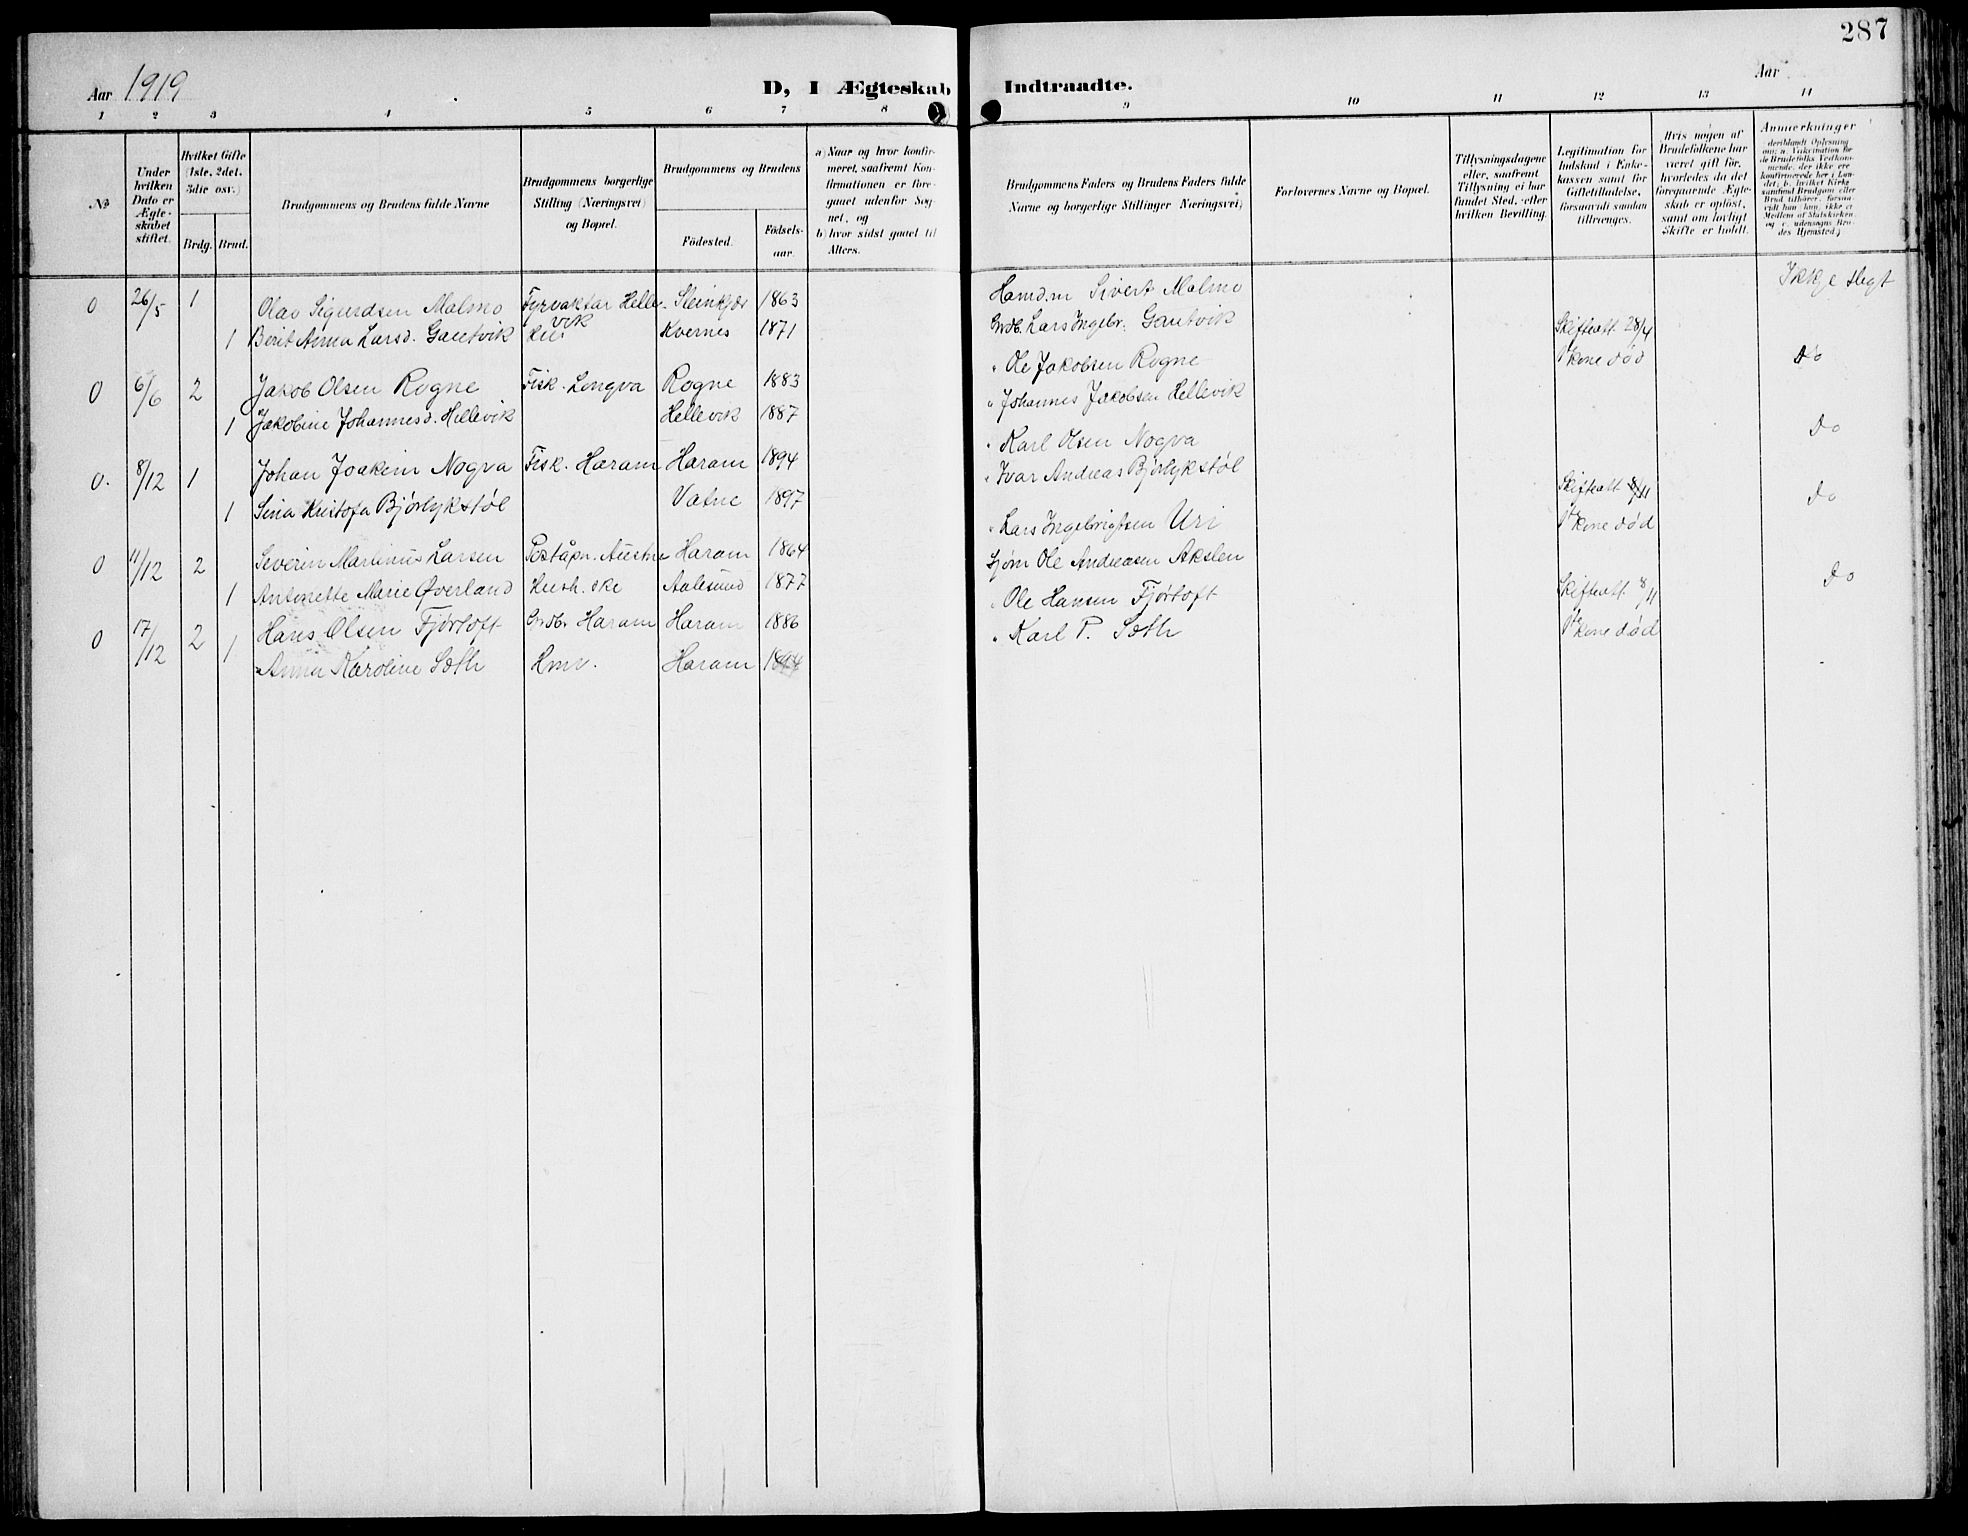 287
Aar 1919
D, I Ægteskab Indtraadte.
Aar
1 2 3 4 5 6 7 8 9 10 11 12 13 14
№
Under hvilken Dato er Ægteskabet stiftet.
Hvilket Gifte (1ste, 2det, 3die osv.)
Brdg. Brud.
Brudgommens og Brudens fulde Navne
Brudgommens borgerlige Stilling (Næringsvei) og Bopæl.
Brudgommens og Brudens
Fødested.
Fødselsaar.
a) Naar og hvor konfirmeret, saafremt Konfirmationen er foregaaet udenfor Sognet, og
b) hvor sidst gaaet til Alters.
Brudgommens Faders og Brudens Faders fulde Navne og borgerlige Stillinger (Næringsvei)
Forlovernes Navne og Bopæl.
Tillysningsdagene eller, saafremt Tillysning ei har fundet Sted, efter hvilken Bevilling.
Legitimation for Indskud i Enkekassen samt for Giftetilladelse, forsaavidt saadan tiltrænges.
Hvis nogen af Brudefolkene har været gift før, hvorledes da det foregaaende Ægteskab er opløst, samt om lovligt Skifte er holdt.
Anmerkninger
0 26/5 1 Olav Sigurdsen Malmo Fyrvaktar Hellevik Steinkjær 1863 Handm Sivert Malmo Ikkje slegt
1 Berit Anna Larsd. Gautvik Kvernes 1871 Grdb. Lars Ingebr. Gautvik
0 6/6 2 Jakob Olsen Rogne Fisk. Longva Rogne 1883 " Ole Jakobsen Rogne Skifteatt 28/4 1ste kone død Do
1 Jakobine Johannesd. Hellevik Hellevik 1887 " Johannes Jakobsen Hellevik
0. 8/12 1 Johan Joakim Nogva Fisk. Haram Haram 1894 " Karl Olsen Nogva Do
1 Sina Kristofa Bjørlykstøl Vatne 1897 " Ivar Andreas Bjørlykstøl
0 11/12 2 Severin Martinus Larsen Poståpn. Austnes Haram 1864 " Lars Ingebrigtsen Uri Skifteatt 8/11 1ste kone død Do
1 Antonette Marie Øverland Aalesund 1877 Sjøm Ole Andreasen Akslen
0 17/12 2 Hans Olsen Fjørtoft Grdbr Haram Haram 1886 " Ole Hansen Fjørtoft Skifteatt. 8/11 1ste kone død Do
1 Anna Karoline Sæth Hmv. Haram " Karl P. Sæth